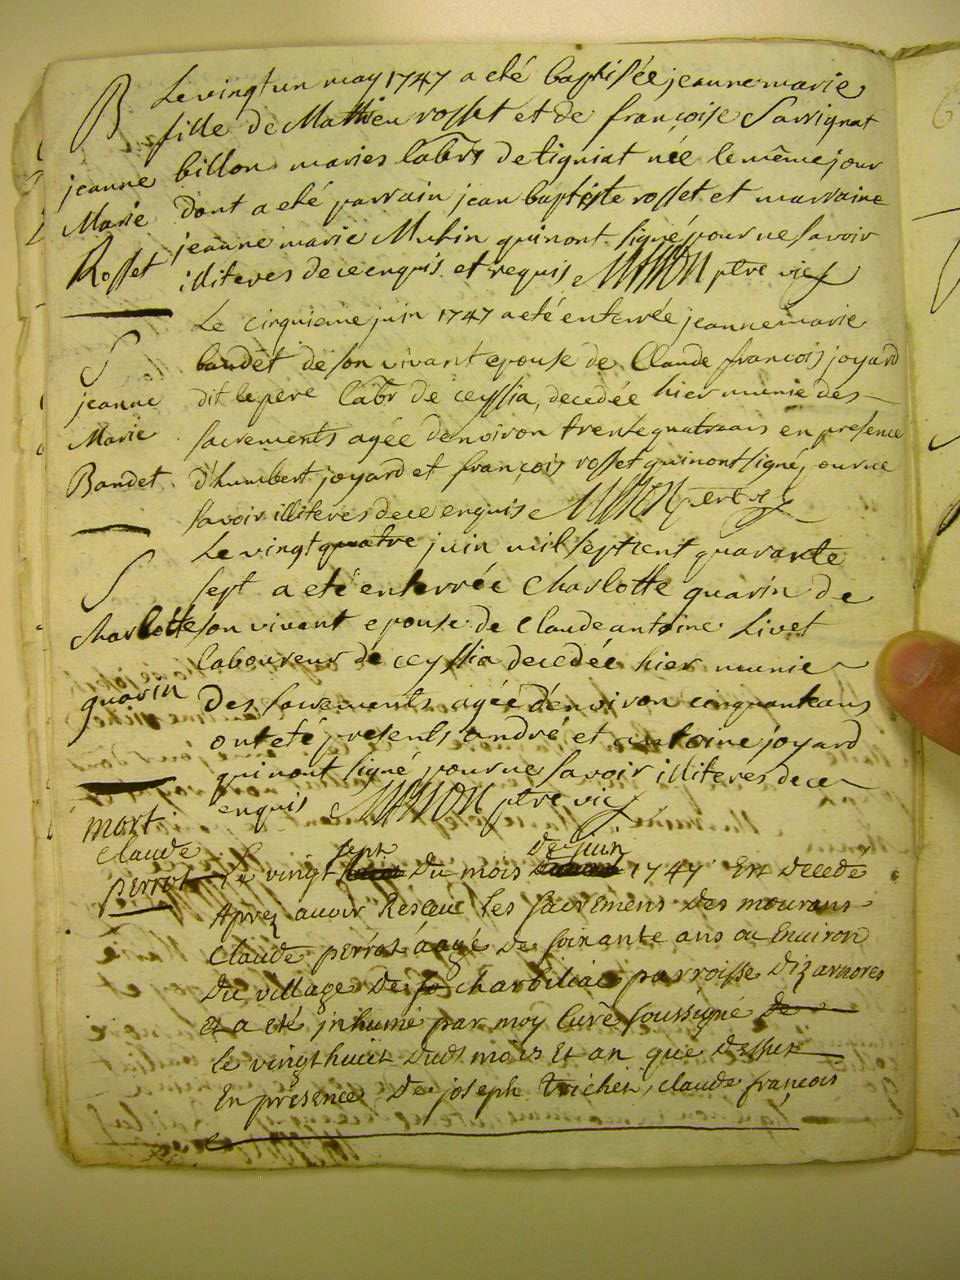 B
jeanne
Marie
Rosset
Le vingt un may 1747 a eté baptisée jeanne marie
fille de Mathieu rosset et de françoise Sarrignat
billon maries labrs de tigniat née le même jour
dont a eté parrain jean baptiste rosset et marraine
jeanne marie Mutin qui n'ont signé pour ne savoir
illiteres de ce enquis et requis Misson ptre vic
S
jeanne
Marie
Baudet
Le cinquieme juin 1747 a eté enterrée jeanne marie
baudet de son vivant epouse de Claude françois joyard
dit le pere labr de ceyssia, decedée hier munie des
sacrements agée denviron trente quatre ans en présence
d'humbert joyard et françois rosset qui n'ont signé, pour ne
savoir illiteres de ce enquis Misson ptre v
S
Charlotte
quarin
Le vingt quatre juin mil sept cent quarante
sept a eté enterrée Charlotte quarin de
son vivant epouse de Claude antoine Livet
laboureur de ceyssia decedée hier munie
des sacrements agée d'environ cinquante ans
ont eté presents andré et antoine joyard
qui n'ont signé pour ne savoir illiteres de ce
enquis Misson ptre vic
mort
Claude
perrot
sept de juin
Le vingt du mois 1747 Est decede
Aprez auoir Resceue les sacremens des mourans
Claude perrot áagé de soixante ans ou Enuiron
du village de charbiliac parroisse dizarnores
et a eté jnhumé par moy Curé soussigné de
le vingt huict dudt mois Et an que dessus
En présence de joseph trichin, claude françois